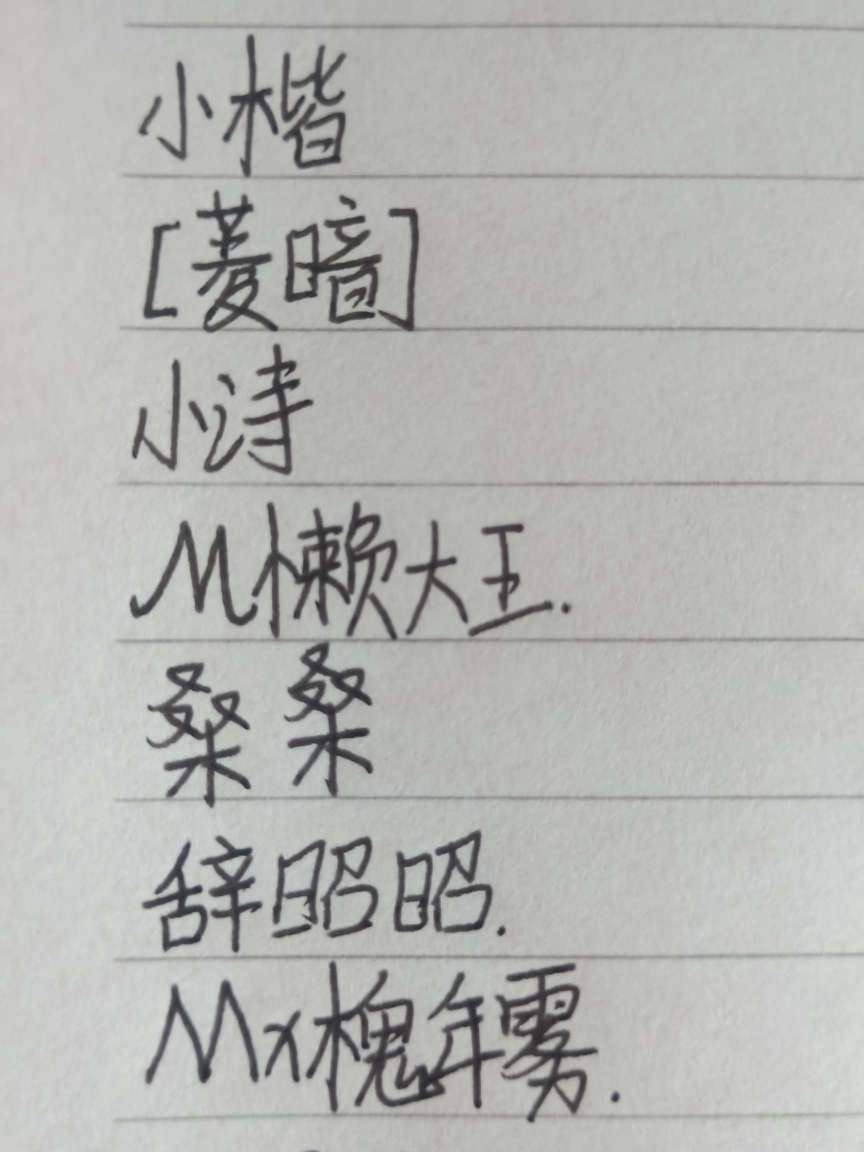 小楷
[蒌暗]
小涛
M懒大王.
桑桑
辞昭昭.
Mx槐年雾.